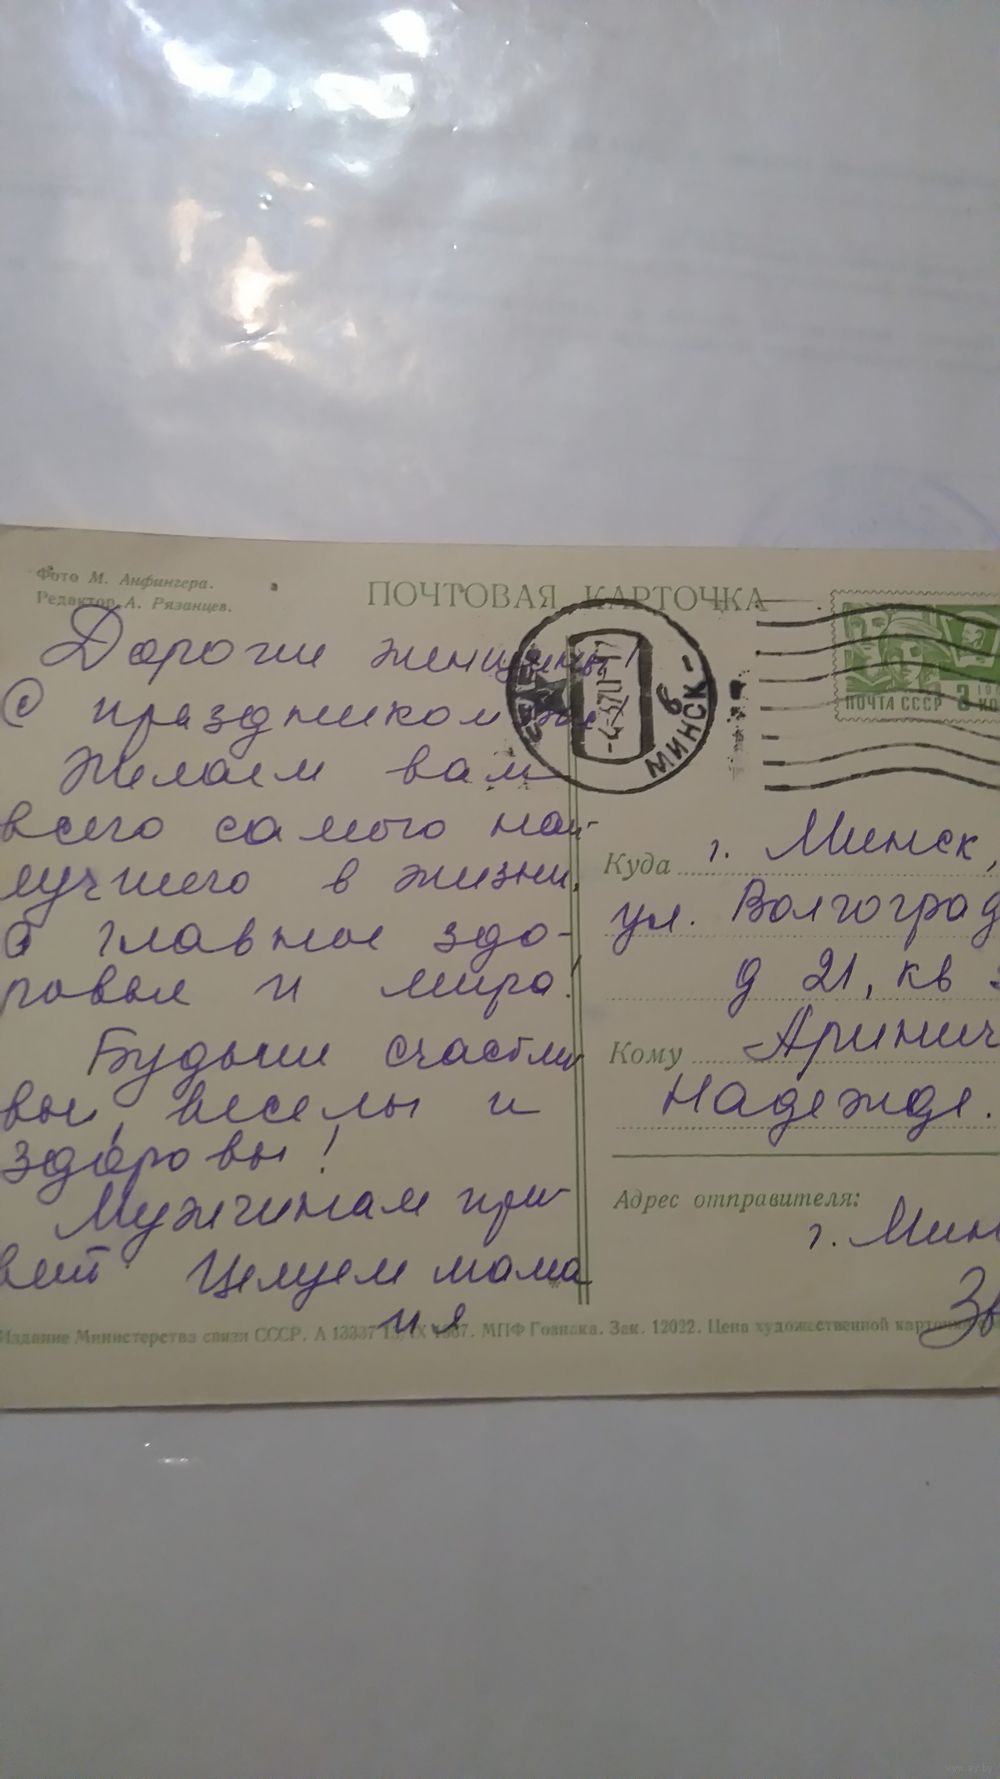 Фото М. Анфингера.
Редактор А. Рязанцев.
ПОЧТОВАЯ КАРТОЧКА
Дорогие женщины!
С праздником
Желаем вам
всего самого наи-
лучшего в жизни,
а главное здо-
ровья и мира.
Будьте счастли
вы, веселы и
здоровы!
Мужчинам при-
вет. Целуем мама
и я
МИНСК-
6
ПОЧТА СССР
3 КО
Куда г. Минск,
ул. Волгоград
д 21, кв
Кому Аринич
Надежде.
Адрес отправителя:
г. Мин
Зв
Издание Министерства связи СССР. А 13337 МПФ Гознака. Зак. 12022. Цена художественной
www.ay.by